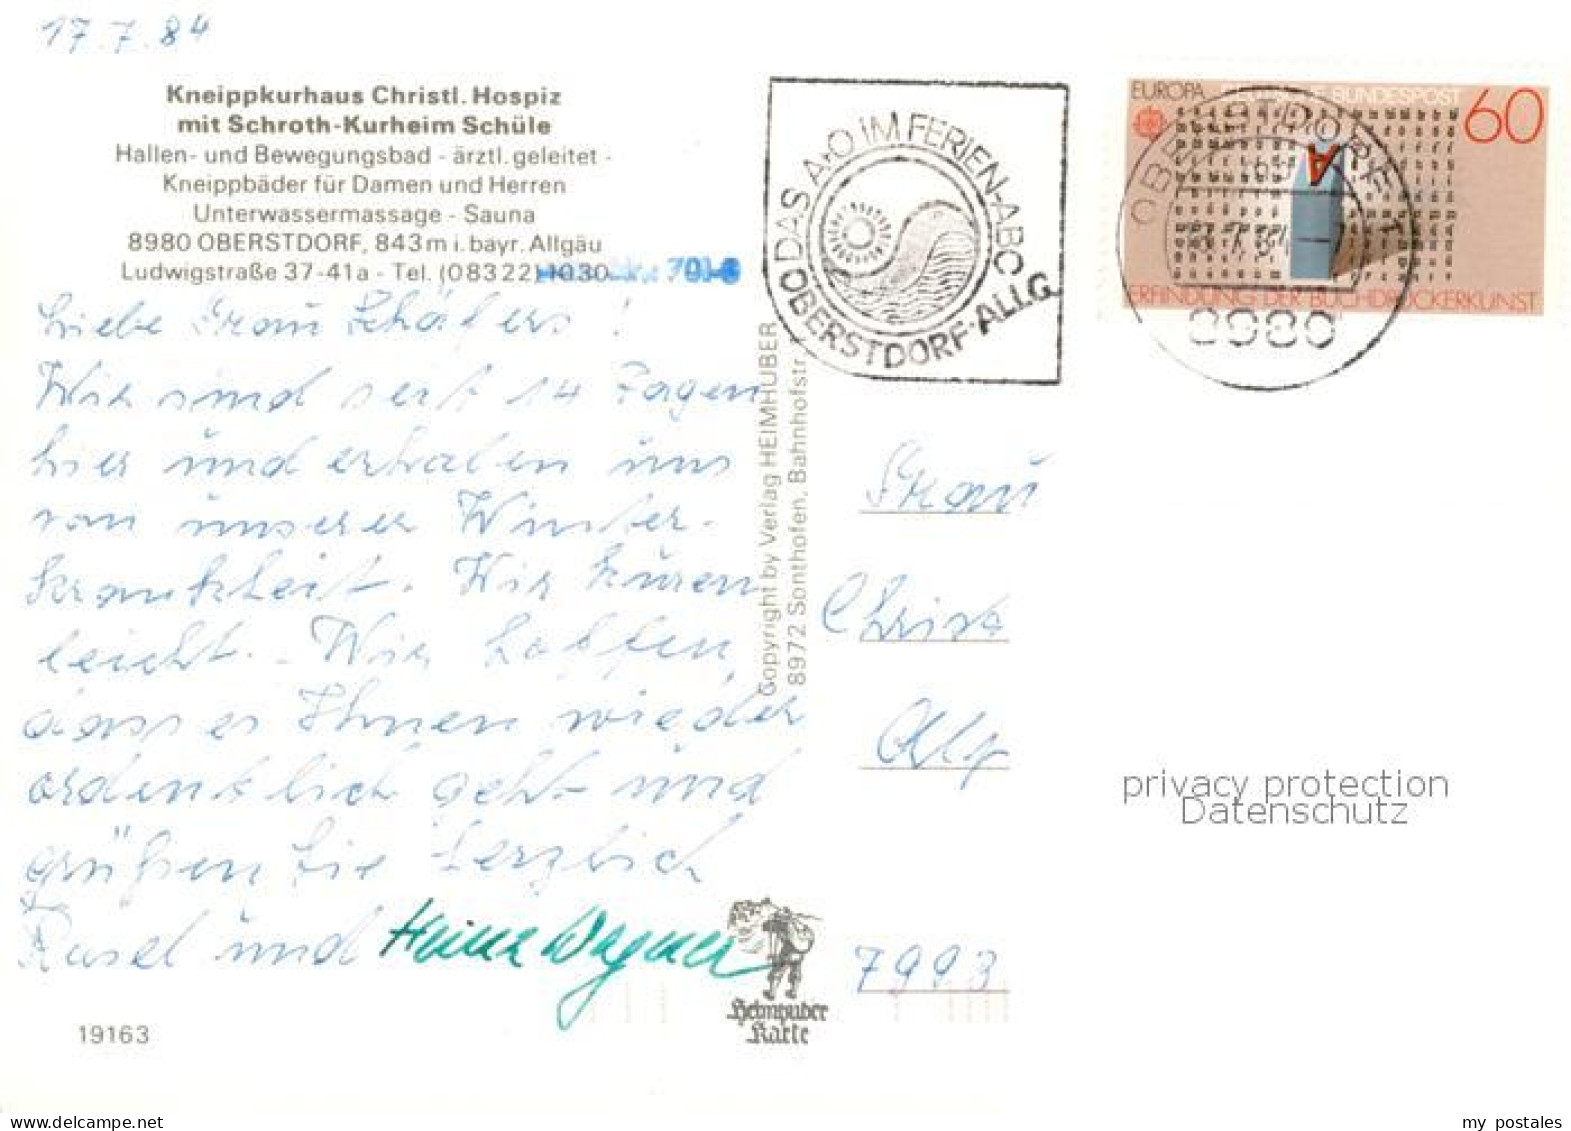 17.7.84
Kneippkurhaus Christl. Hospiz
mit Schroth-Kurheim Schüle
Hallen- und Bewegungsbad - ärztl. geleitet -
Kneippbäder für Damen und Herren
Unterwassermassage - Sauna
8980 OBERSTDORF, 843 m i. bayr. Allgäu
Ludwigstraße 37-41a - Tel. (08322) 1030
Liebe Frau Schäfers!
Wir sind seit 14 Tagen
hier und erholen uns
von unserer Winter-
krankheit. Wir kuren
leicht. - Wir hoffen,
dass es Ihnen wieder
ordentlich geht und
grüßen Sie herzlich
und Heinz Wagner
19163
Copyright by Verlag HEIMHUBER
8972 Sonthofen, Bahnhofstr.
Heimhuber
Karte
DAS A+O IM FERIEN-ABC
OBERSTDORF·ALLG.
EUROPA DEUTSCHE BUNDESPOST 60
ERFINDUNG DER BUCHDRUCKERKUNST
OBERSTDORF
8980
Frau
Christa
7993
privacy protection
Datenschutz
www.delcampe.net
my_postales